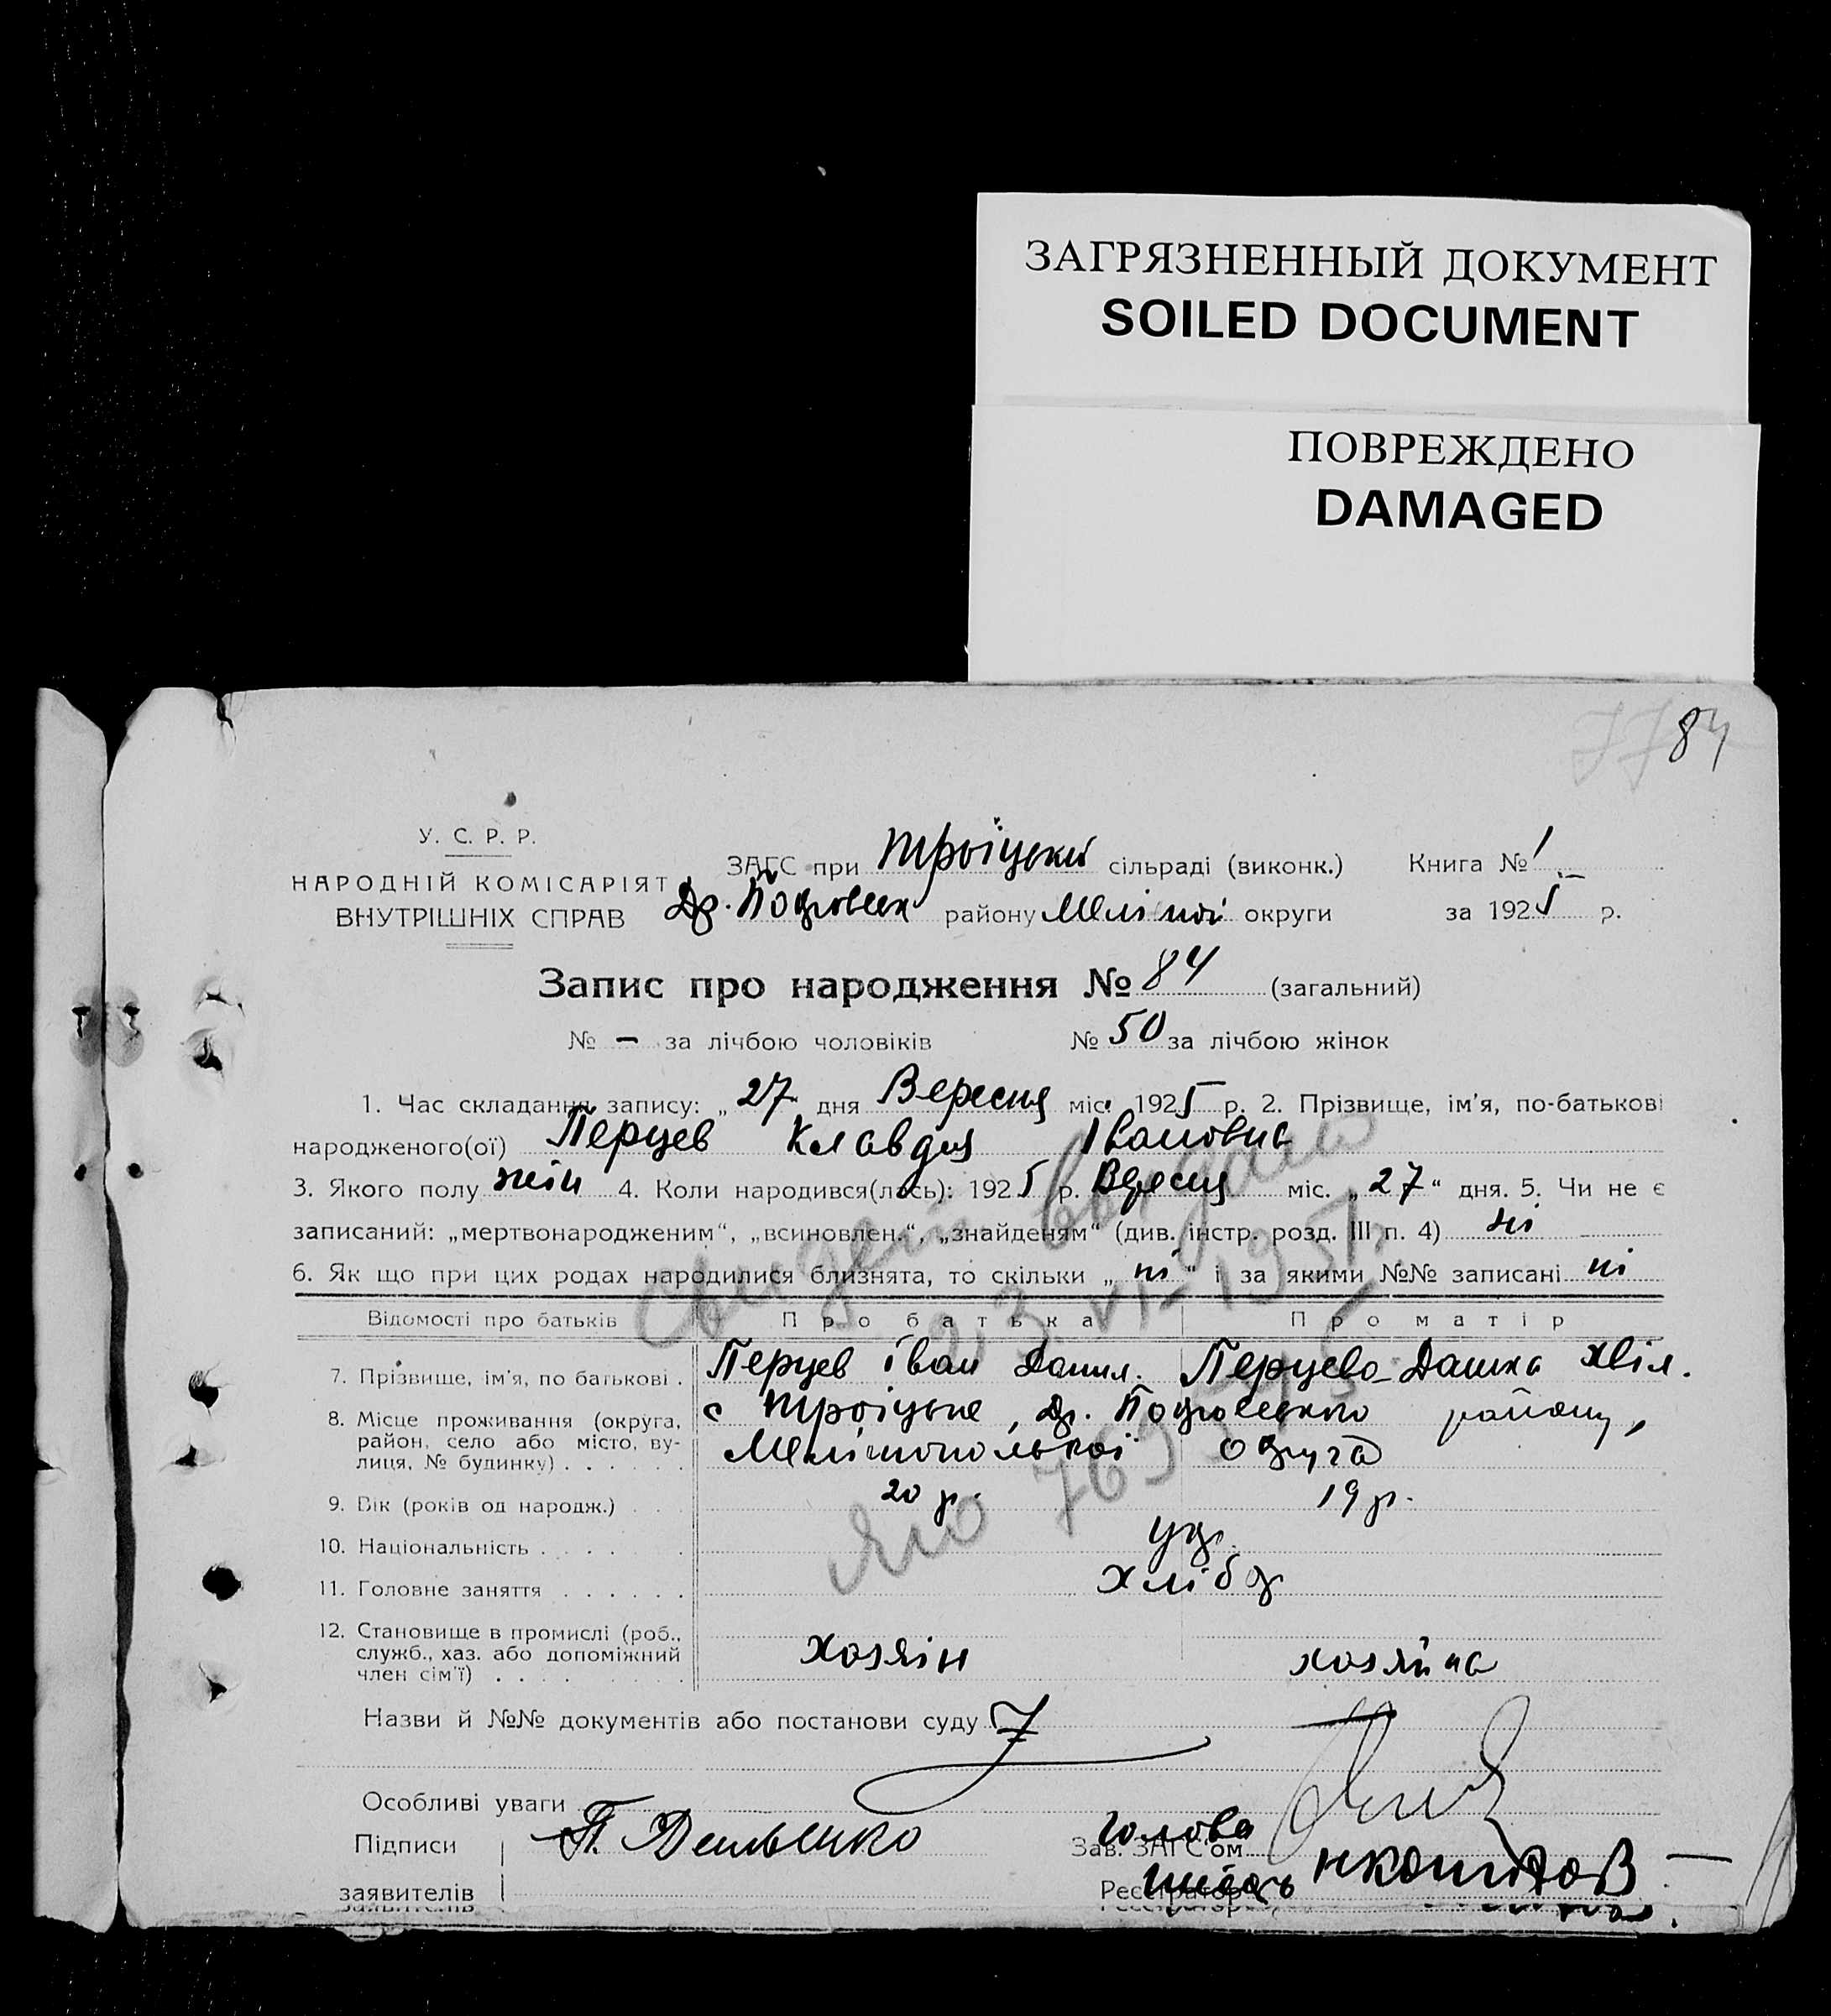 ЗАГРЯЗНЕННЫЙ ДОКУМЕНТ
SOILED DOCUMENT
ПОВРЕЖДЕНО
DAMAGED
77 84
У. С. Р. Р.
НАРОДНІЙ КОМІСАРІЯТ
ВНУТРІШНІХ СПРАВ
ЗАГС при Троіцькій сільраді (виконк.) Книга № 1
району округи за 1925 р.
Запис про народження № 84 (загальний)
№ – за лічбою чоловіків № 50 за лічбою жінок
1. Час складання запису: „ 27 дня Вересня міс. 1925 р. 2. Прізвище, ім'я, по-батькові
народженого(ої) Перцев Клавдия Івановна
3. Якого полу жін 4. Коли народився(лась): 1925 р. Вересня міс. „ 27 “ дня. 5. Чи не є
записаний: „мертвонародженим“, „всиновлен.“, „знайденям“ (див. інстр. розд. III п. 4) ні
6. Як що при цих родах народилися близнята, то скільки „ ні “ і за якими №№ записані ні
Свидет выдано
23 VI-1951г
Відомості про батьків Про батька Про матір
7. Прізвище, ім'я, по батькові . Перцев Іван Данил. Перцева Дашка Хвіл.
8. Місце проживання (округа, район, село або місто, вулиця, № будинку) . . . . . . с Троіцьке, району,
Мелітопольскоі Округа
9. Вік (років од народж.) . . 20 р. 19 р.
10. Національність . . . . . укр.
11. Головне заняття . . . . . . хлібор
12. Становище в промислі (роб.,
служб., хаз. або допоміжний
член сім'ї) . . . . . . . . хозяін хозяйка
Назви й №№ документів або постанови суду
Особливі уваги
Підписи
заявителів
Голова
Зав. ЗАГС'ом
Реєстратор